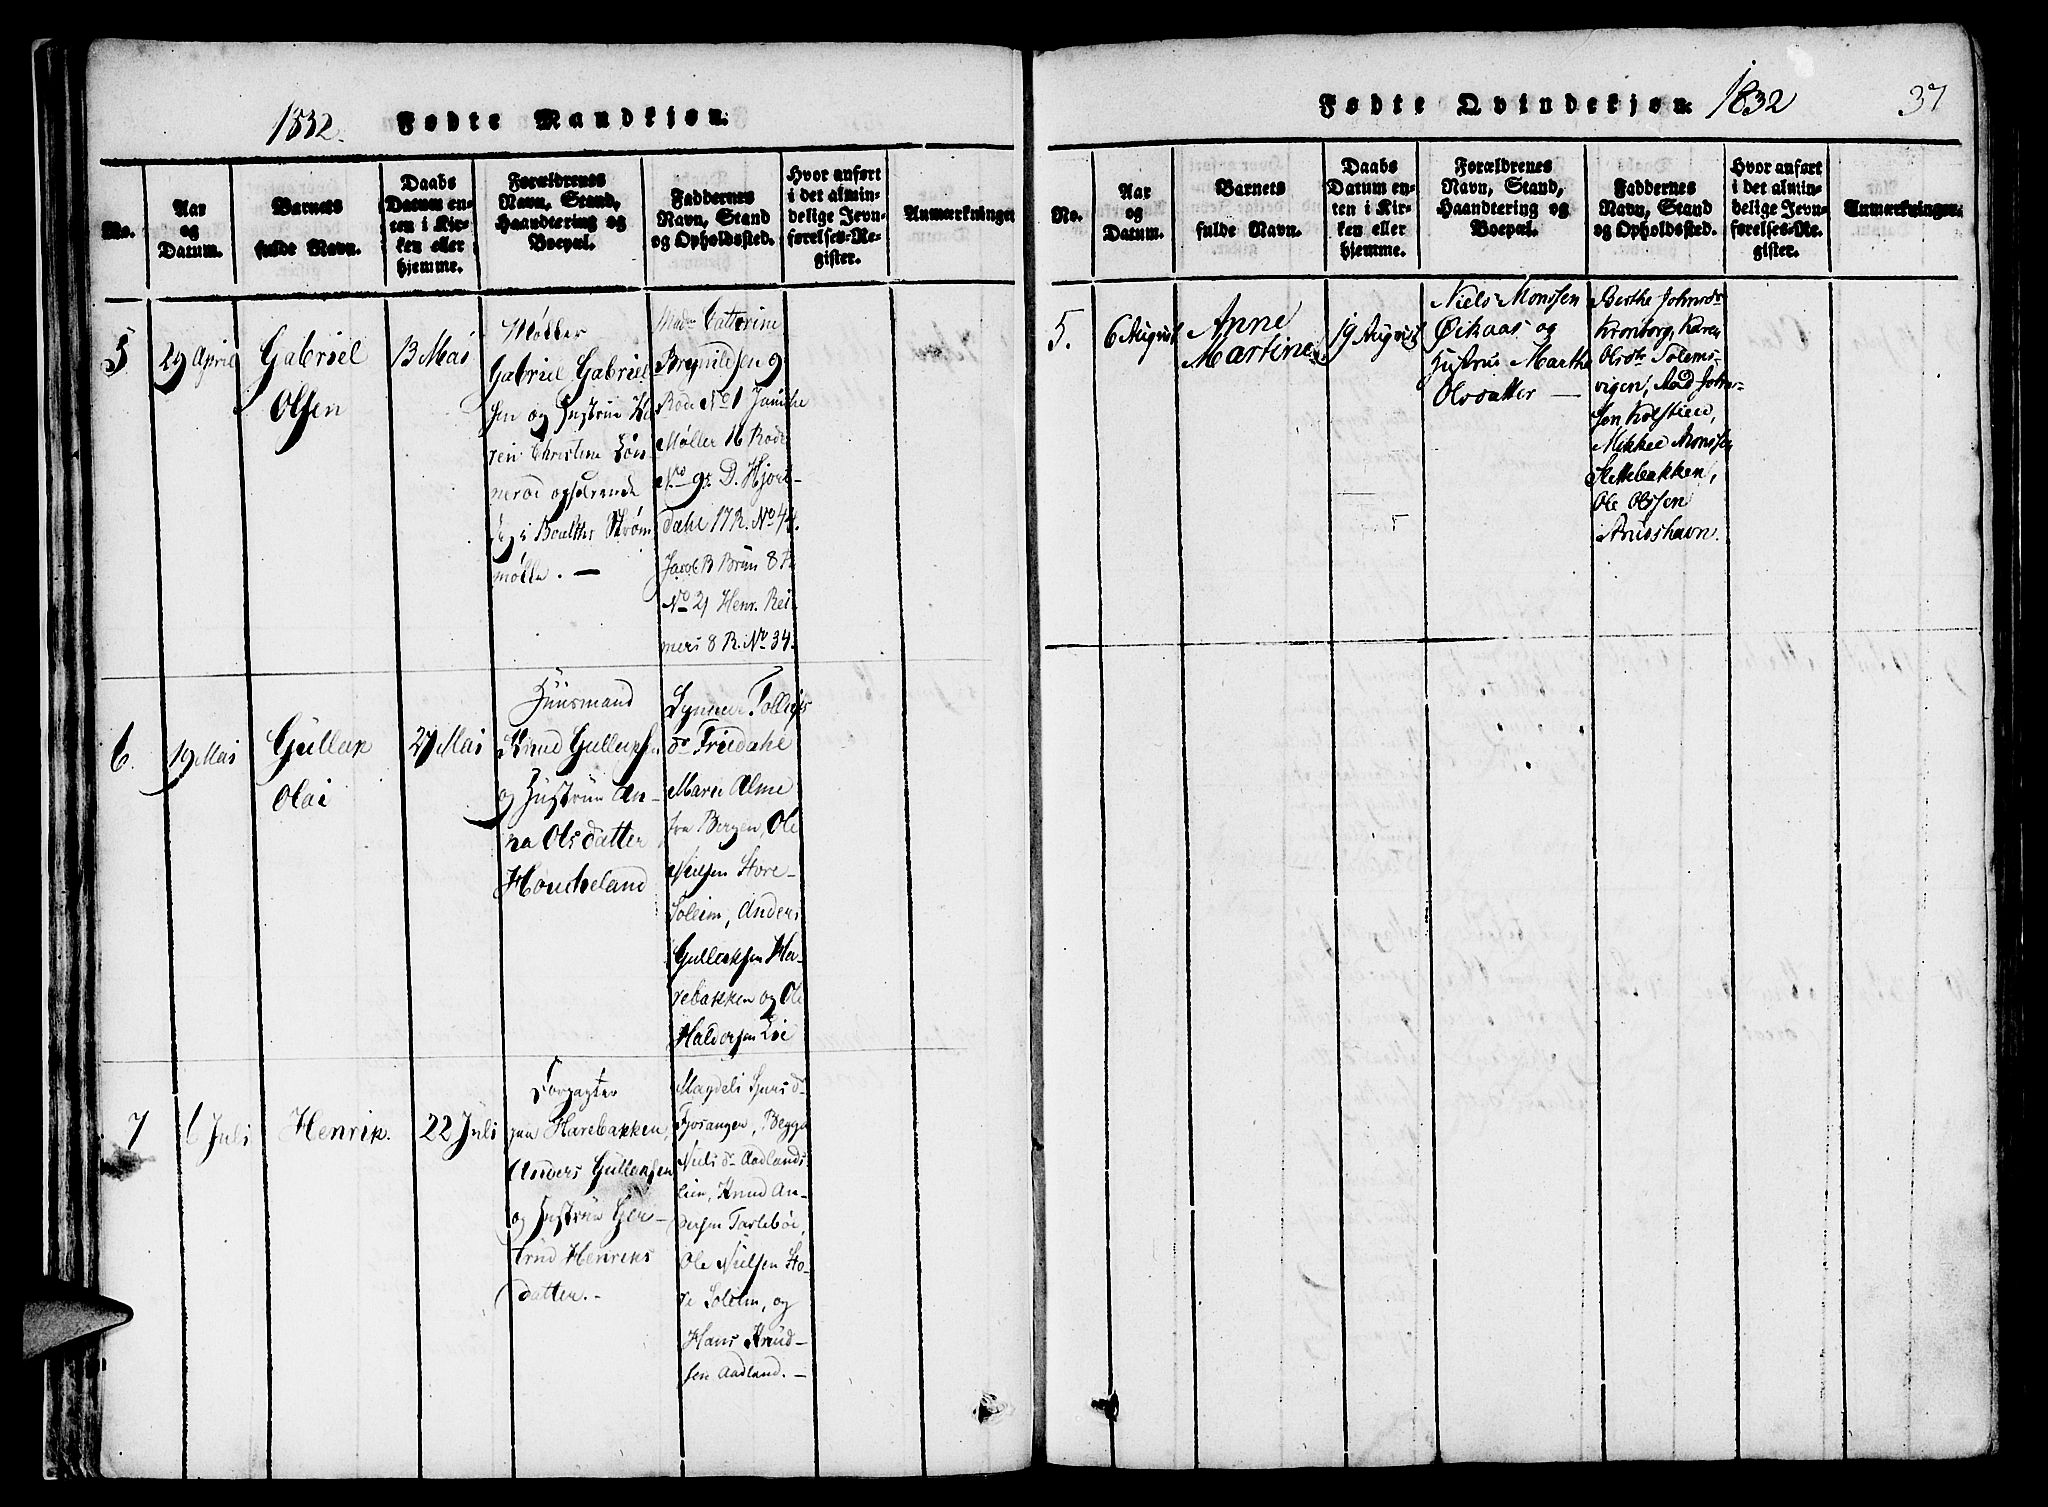 1832.
Fødte Mandkjøn:
No.
Aar
og
Datum.
Barnets
fulde Navn.
Daabs
Datum en-
ten i Kir-
ken eller
hjemme.
Forældrenes
Navn, Stand,
Haandtering og
Boepæl.
Faddernes
Navn, Stand
og Opholdssted.
Hvor anført
i det almin-
delige Jevn-
førelses-Re-
gister.
Anmærkninger
5
29 April
Gabriel
Olsen
13 Mai
Møller
Gabriel Gabriel
sen og Hustrue
Christine
mølle. —
Mad. Cathrine
Brynildsen 9
Rode No 1
Møller 16 Rode
No 9. D. Hjort-
dahl 17 R. No 44.
Jacob B Bruun 8 R
No 21 Henr. Rei-
mers 8 R. No 34.
6.
19 Mai
Gullak
Olai
27 Mai
Huusmand
Knud Gullaksen
og Hustrue An-
na Olsdatter
Houkeland
dr Friedahl
Marie Alme
fra Bergen, Ole
Nielsen Store-
Soleim, Anders
Gullaksen Ha-
rebakken og Ole
Haldorsen Lie
7
6 Juli
Henrik.
22 Juli
Forpagter
paa Harebakken,
Anders Gullaksen
og Hustrue Ger-
trud Henriks
datter. -
Magdeli
Fjøsangen,
Niels dr Aadlands-
lien, Knud An-
dersen
Ole Nielsen Sto-
re Soleim, og
Hans Knud-
sen Aadland. -
Fødte Qvindekjøn:
1832
37
No.
Aar
og
Datum.
Barnets
fulde Navn.
Daabs
Datum en-
ten i Kir-
ken eller
hjemme.
Forældrenes
Navn, Stand,
Haandtering og
Boepæl.
Faddernes
Navn, Stand
og Opholdssted.
Hvor anført
i det almin-
delige Jevn-
førelses-Re-
gister.
Anmærkninger.
5.
6 August
Anne
Martine
19 August
Niels Monssen
og
Hustrue Marthe
Olsdatter —
Berthe Johnsdr
Kronborg, Karen
Olsdr Solems-
vigen,
sen Kolstien,
Mikkel Monssen
Slettebakken,
Ole Olssen